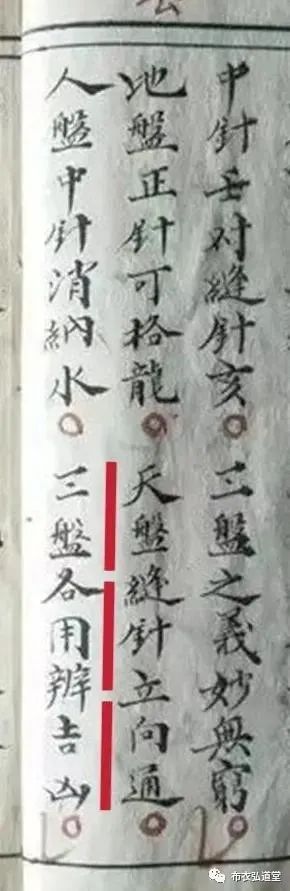 中針壬对縫針亥○三盤之義妙無窮○
地盤正針可格龍○天盤縫針立向通○
人盤中針消納水○三盤各用辨吉凶○
布衣弘道堂